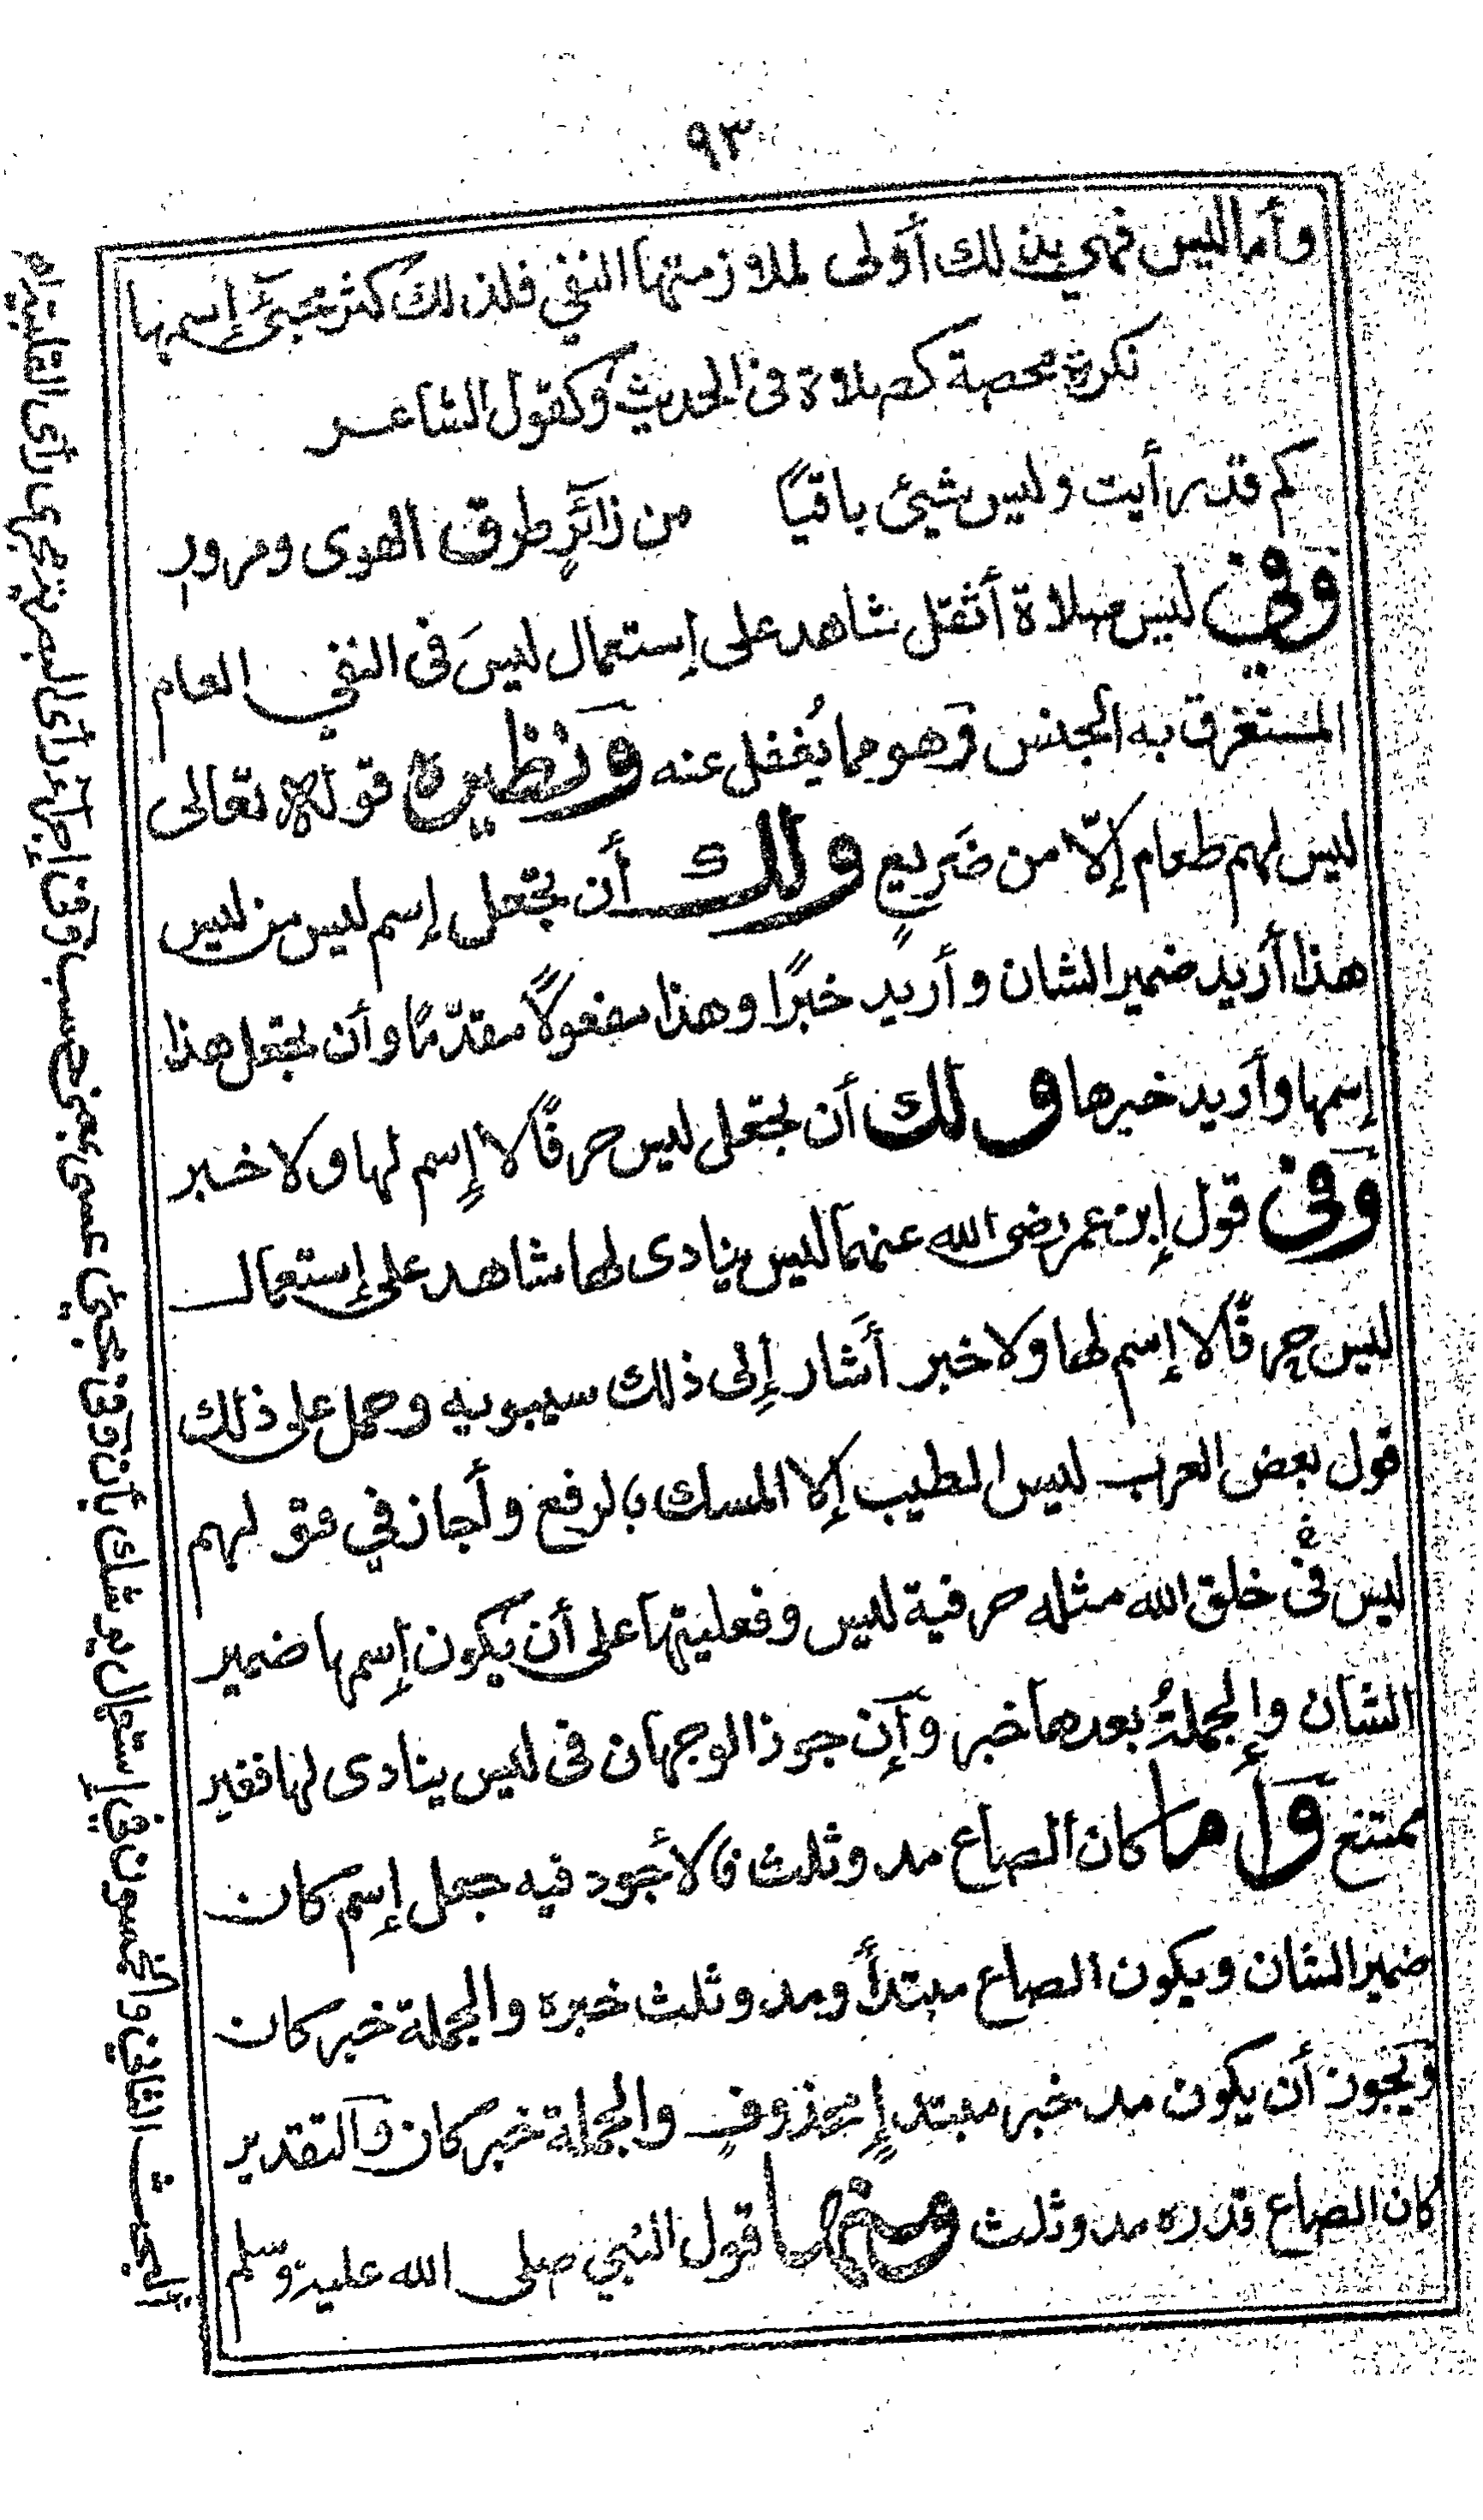 ٩٣
وأما ليس فهي بذلك أولى لملازمتها النفي فلذلك كثر مجيئ إسمها
نكرة محصة كصلاة في الحديث وكقول الشاعر
كم قد رأيت وليس شيئ باقيًا من زائرٍ طرق الهوى ومرور
وفي ليس صلاة أثقل شاهد على إستعمال ليسَ في النفي العام
المستغرق به الجنس وهو مما يُغفل عنه ونظيره قوله تعالى
ليس لهم طعام إلّا من ضَرِيعٍ ولك أن تجعل إسم ليس من ليس
هذا أريد ضمير الشان وأريد خبرًا وهذا مفعولاً مقدّمًا وأن تجعل هذا
إسمها وأريد خبرها ولك أن تجعل ليس حرفًا لا إسم لها ولا خبر
وفي قول إبن عمر رضى الله عنهما ليس ينادى لها شاهد على إستعمال
ليس حرفًا لا إسم لها ولا خبر أشار إلى ذلك سيبويه وحمل على ذلك
قول بعض العرب ليس الطيب إلا المسك بالرفع وأجاز في قولهم
ليس في خلق الله مثله حرفية ليس وفعليتها على أن يكون إسمها ضمير
الشان والجملةُ بعدها خبر وإن جوز الوجهان في ليس ينادى لها فغير
ممتنع وأما كان الصاع مد وثلث فالأجود فيه جعل إسم كان
ضمير الشان ويكون الصاع مبتدأً ومد وثلث خبره والجملة خبر كان
ويجوز أن يكون مد خبر مبتدإٍ محذوفٍ والجملة خبر كان والتقدير
كان الصاع قدره مد وثلث ومنها قول النبي صلى الله عليه وسلم
البحث الثاني والخمسون في إستعمال يوشك بأن وفي مجيئ عسى بمعنى حسب وفي إجراء رأى البصرية مجرى رأى القلبية